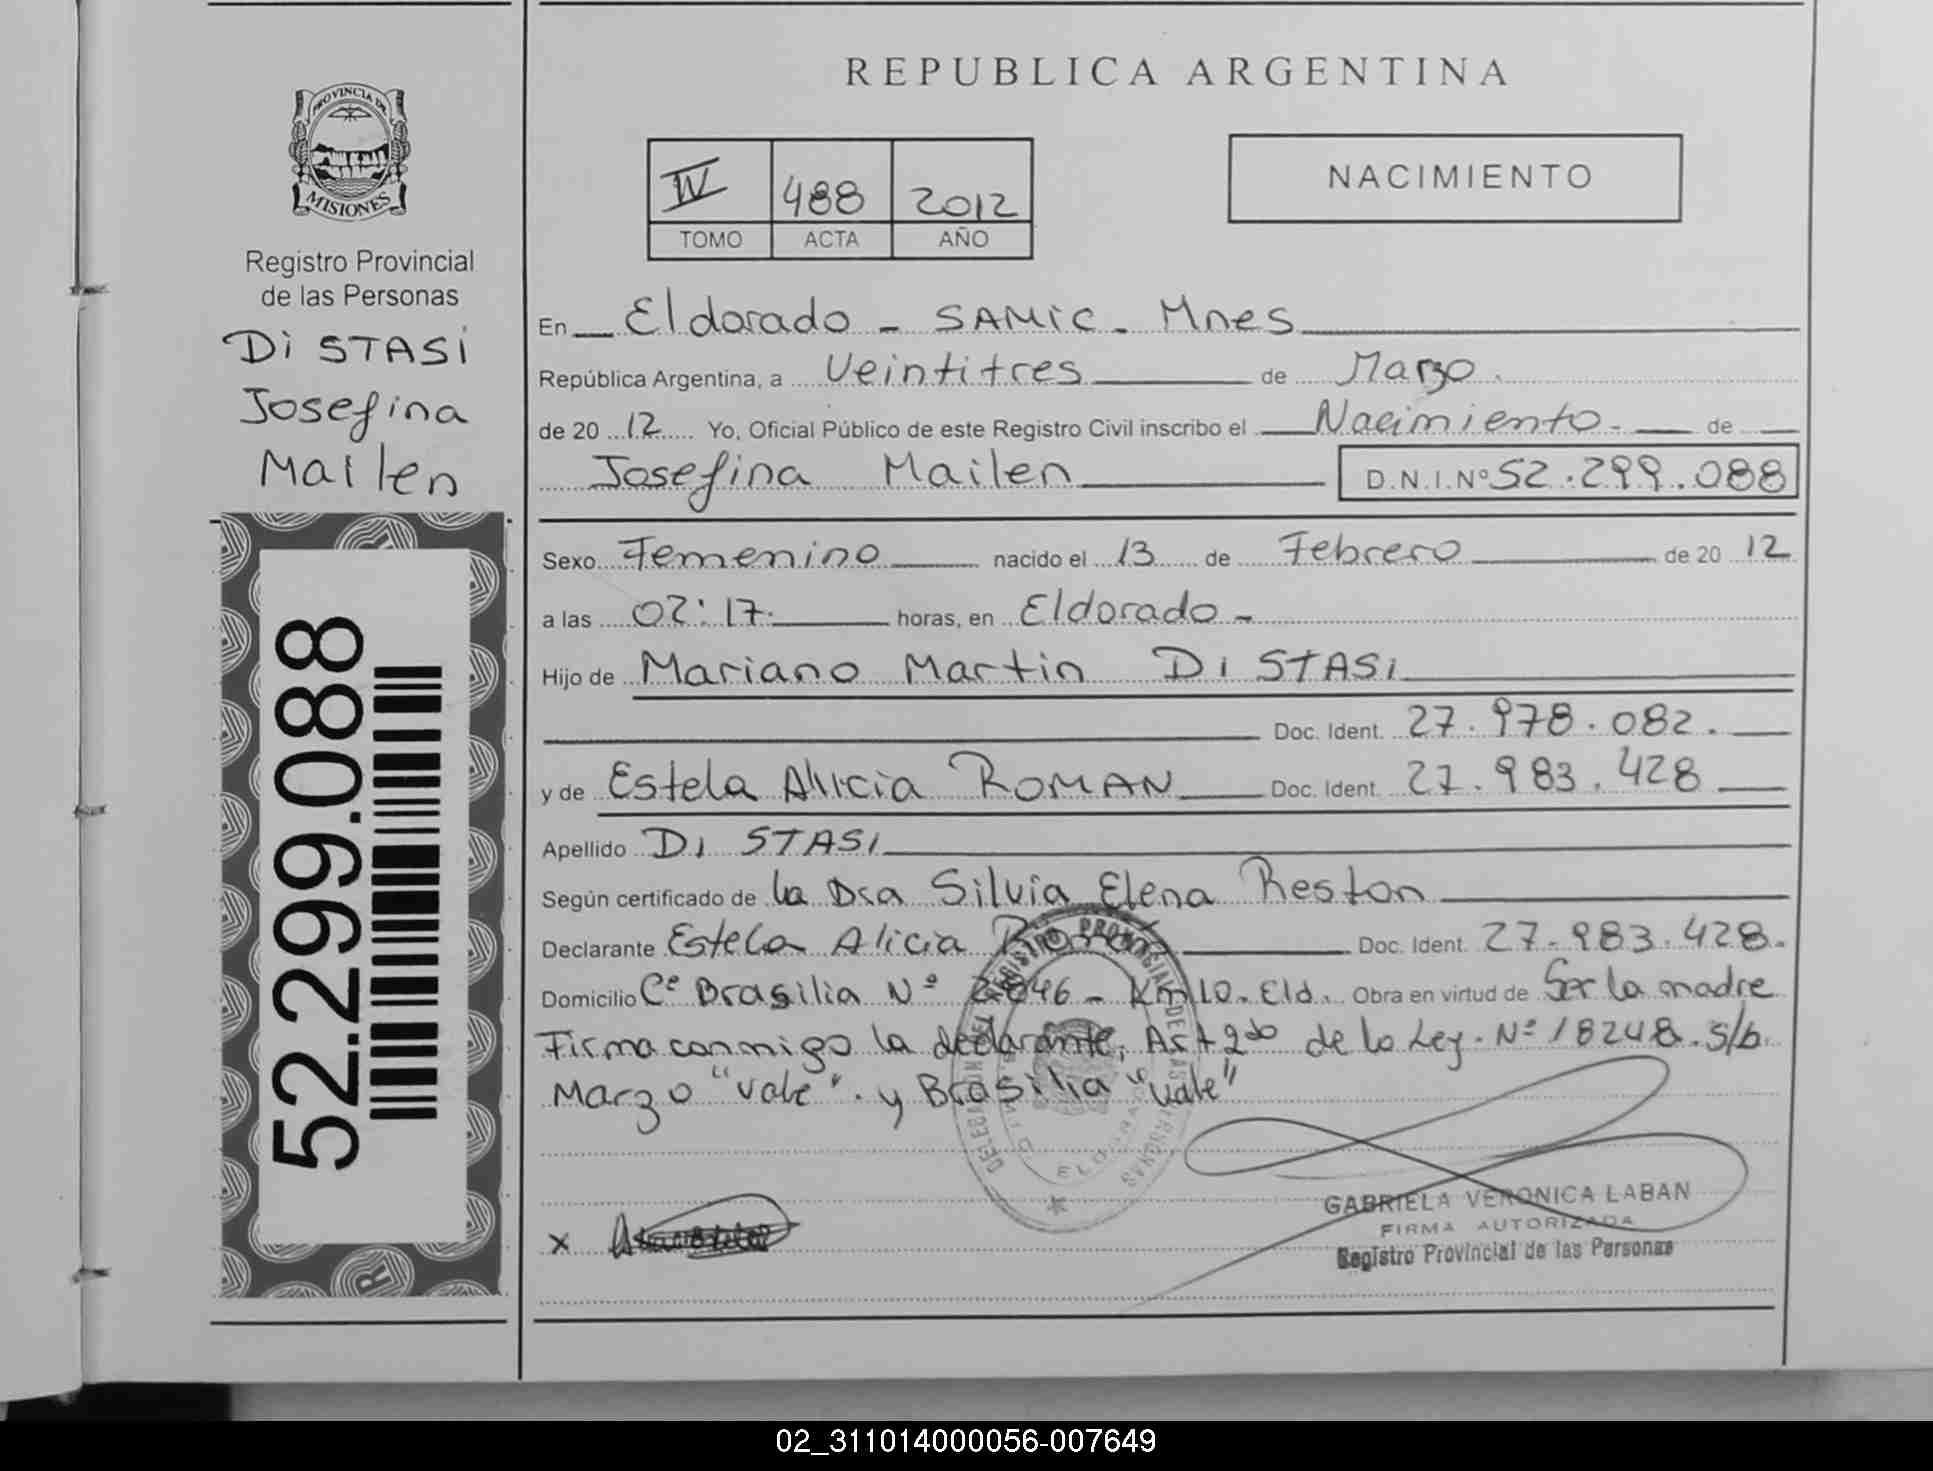 PROVINCIA DE
MISIONES
Registro Provincial
de las Personas
Di STASi
Josefina
Mailen
52.299.088
REPUBLICA ARGENTINA
IV 488 2012
TOMO ACTA AÑO
NACIMIENTO
En Eldorado - SAMIC - Mnes
República Argentina, a Veintitres de Marzo.
de 20 12 Yo, Oficial Público de este Registro Civil inscribo el Nacimiento - de
Josefina Mailen D.N.I.Nº 52.299.088
Sexo Femenino nacido el 13 de Febrero de 20 12
a las 02:17. horas, en Eldorado -
Hijo de Mariano Martin Di STASi
Doc. Ident. 27.978.082.
y de Estela Alicia ROMAN Doc. Ident. 27.983.428
Apellido Di STASI
Según certificado de la Dra Silvia Elena Reston
Declarante Estela Alicia Doc. Ident. 27.983.428.
Domicilio Cº Brasilia Nº - Km 10. Eld. Obra en virtud de Ser la madre
Firma conmigo la declarante, Art 2do de la Ley. Nº 18248. S/b.
Marzo "vale". y Brasilia "vale"
DELEGACION DEL REGISTRO PROVINCIAL DE LAS PERSONAS
ELDORADO
GABRIELA VERONICA LABAN
FIRMA AUTORIZADA
Registro Provincial de las Personas
x
02_311014000056-007649